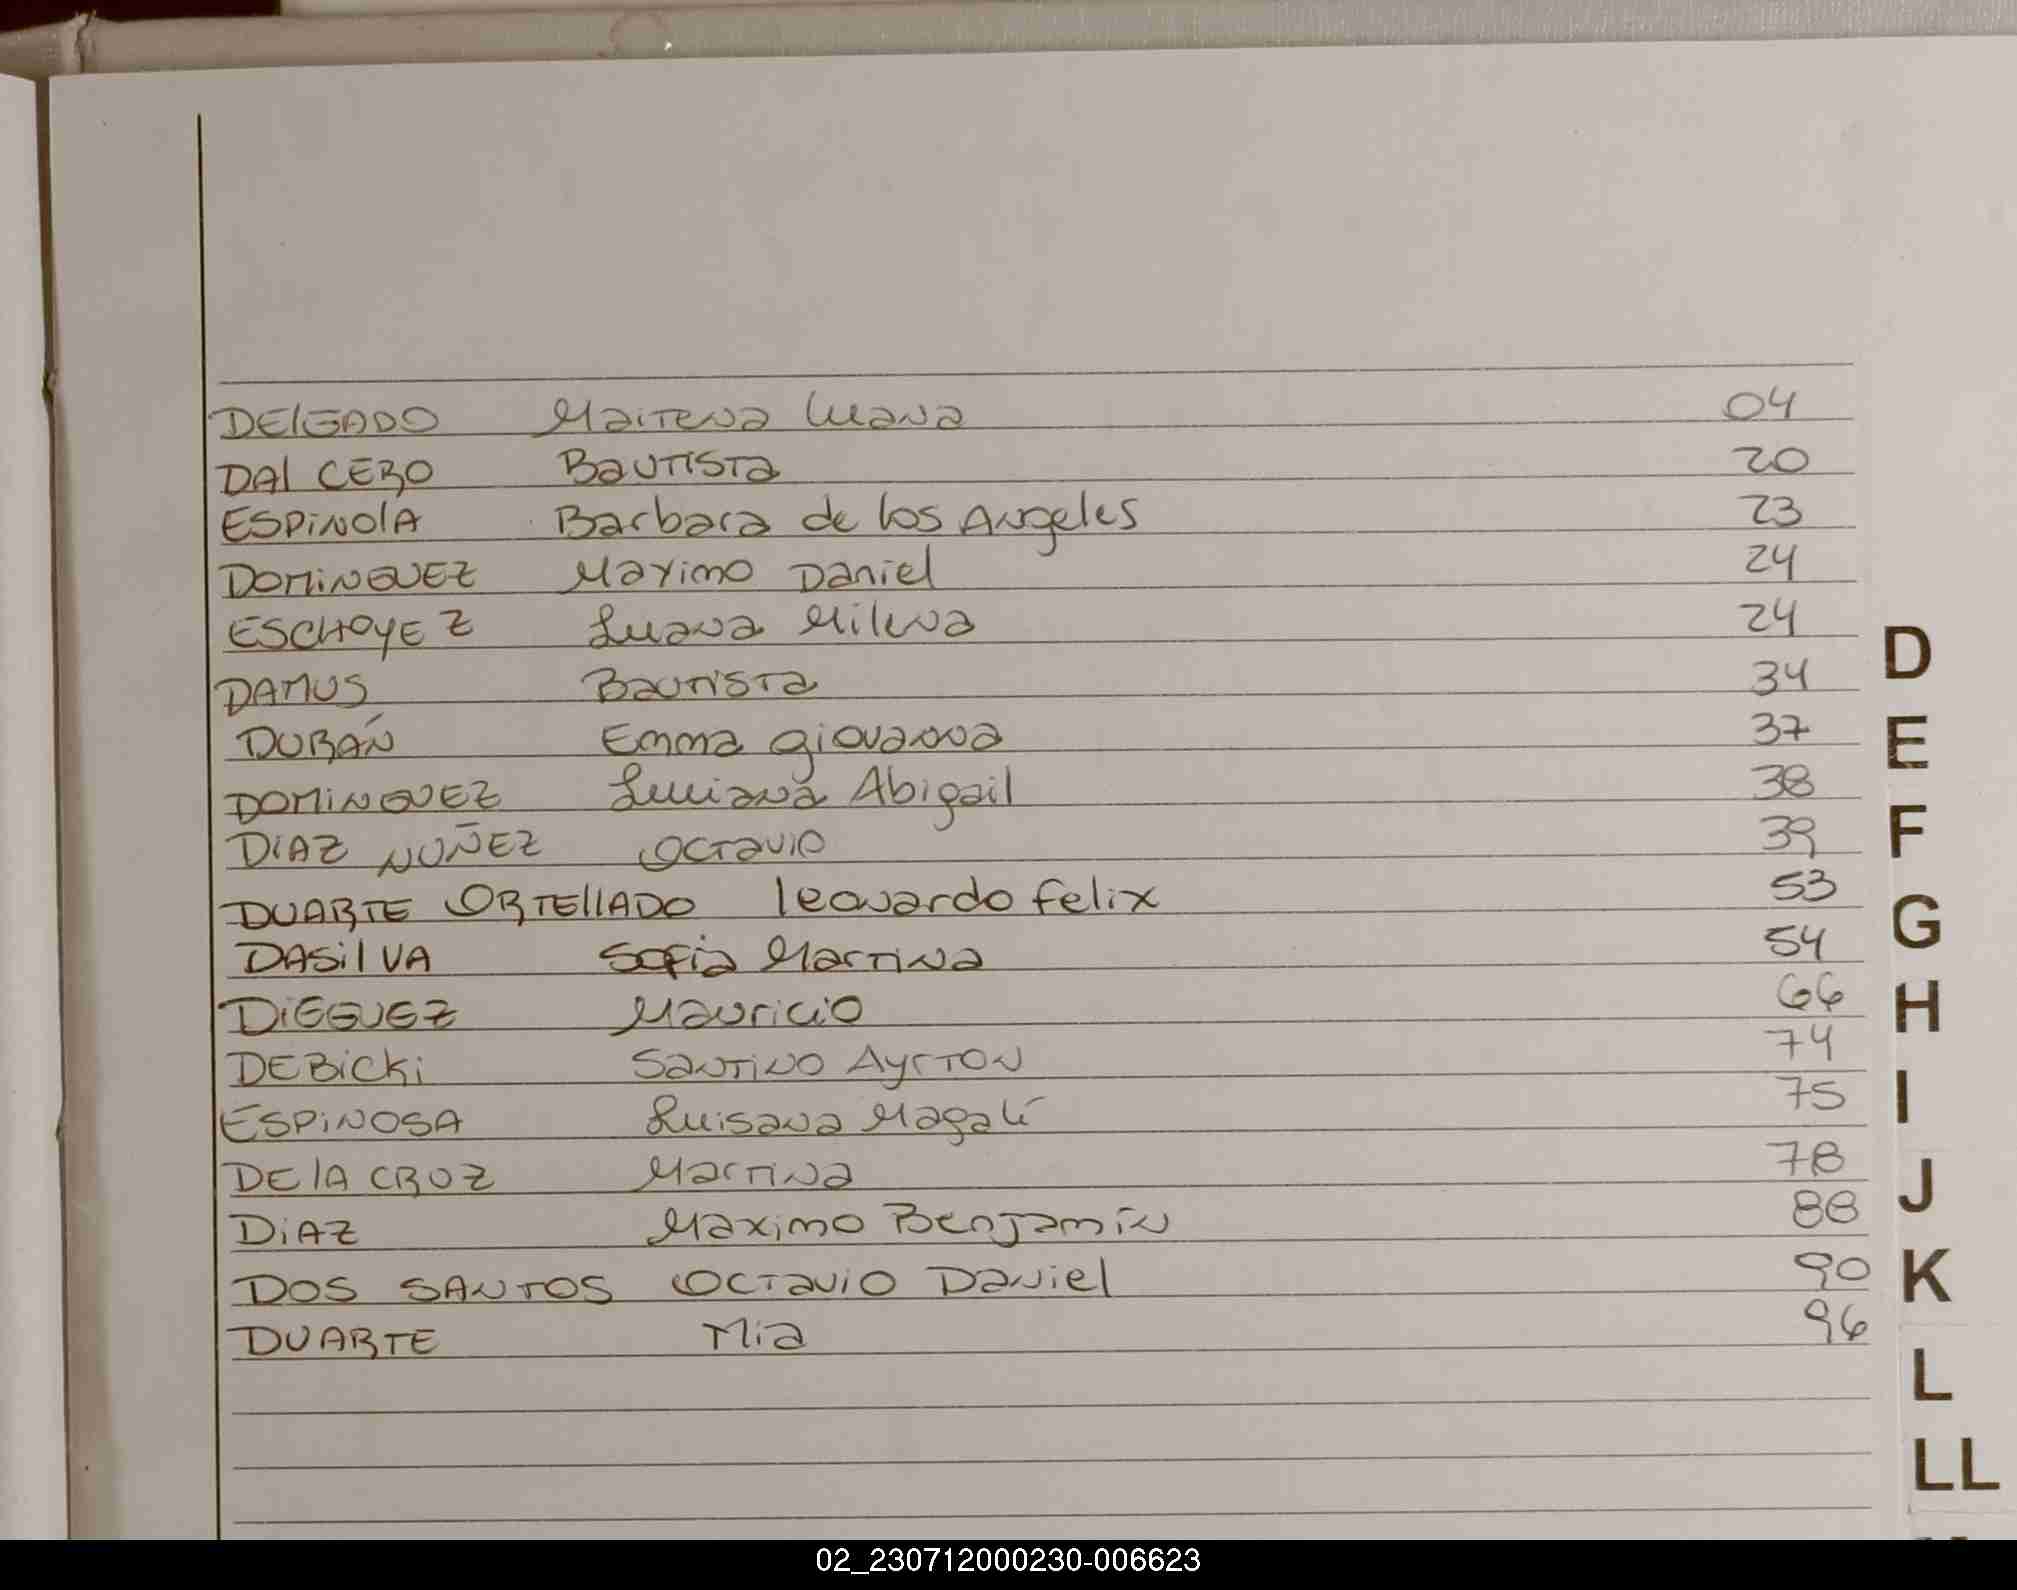 DELGADO Maitena Luana 04
DAL CERO Bautista 20
ESPINOLA Barbara de los Angeles 23
DOMINGUEZ Maximo Daniel 24
ESCHOYEZ Luana Milena 24
DAMUS Bautista 34
DURÁN Emma Giovanna 37
DOMINGUEZ Luciana Abigail 38
DIAZ NUÑEZ Octavio 39
DUARTE ORTELLADO Leonardo Felix 53
DASILVA Sofia Martina 54
DIEGUEZ Mauricio 66
DEBICKI Santino Ayrton 74
ESPINOSA Luisana Magalí 75
DE LA CRUZ Martina 78
DIAZ Maximo Benjamín 88
DOS SANTOS Octavio Daniel 90
DUARTE Mia 96
D
E
F
G
H
I
J
K
L
LL
02_230712000230-006623